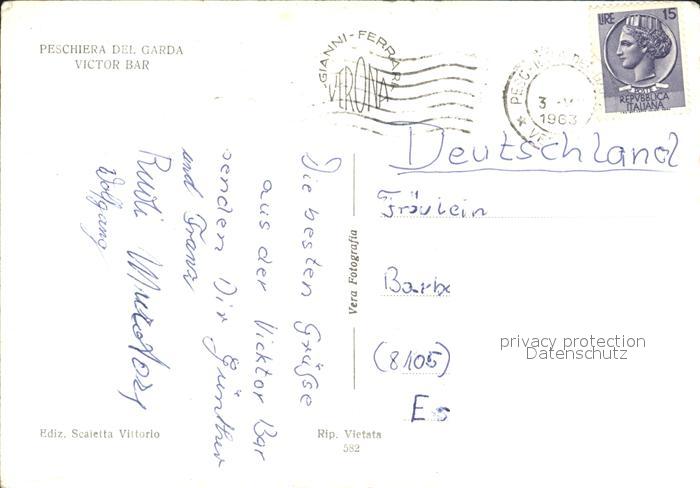 PESCHIERA DEL GARDA
VICTOR BAR
GIANNI-FERRARI
VERONA
3
1963
LIRE 15
POSTE
REPVBBLICA
ITALIANA
Deutschland
Fräulein
Barb
(8105)
Es
Die besten Grüsse
aus der Vicktor Bar
senden Dir Günther
und Franz
Rudi
Wolfgang
Vera Fotografia
privacy protection
Datenschutz
Ediz. Scaietta Vittorio
Rip. Vietata
582